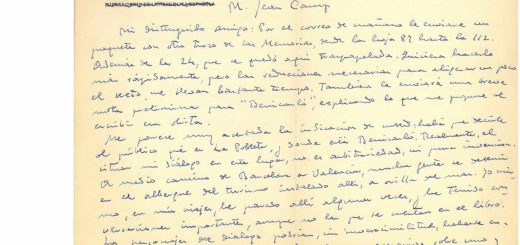 M. Jean Camp
Mi distinguido amigo: Por el correo de mañana le enviaré un
paquete con otro trozo de las Memorias, desde la hoja 87 hasta la 112.
Además de la 24, que se quedó aquí traspapelada. Quisiera hacerlo
más rápidamente, pero las reducciones necesarias para aligerar un poco
el texto, me llevan bastante tiempo. También le enviaré una breve
nota preliminar para "Benicarló", explicando lo que me propuse al
escribir esa obrita.
Me parece muy acertada la indicación de usted: habrá que decirle
al público qué es La Pobleta, y donde está Benicarló. Realmente, el
situar mi diálogo en este lugar, no es arbitrariedad, ni pura invención.
A medio camino de Barcelona a Valencia, mucha gente se detenía
en el albergue del turismo instalado allí, a orilla del mar. Yo mis-
mo, en mis viajes, he parado allí algunas veces, y he tenido con-
versaciones importantes, aunque no las que se cuentan en el libro.
personajes del diálogo podrían, sin inverosimilitud, haberse en-
sobre uno y